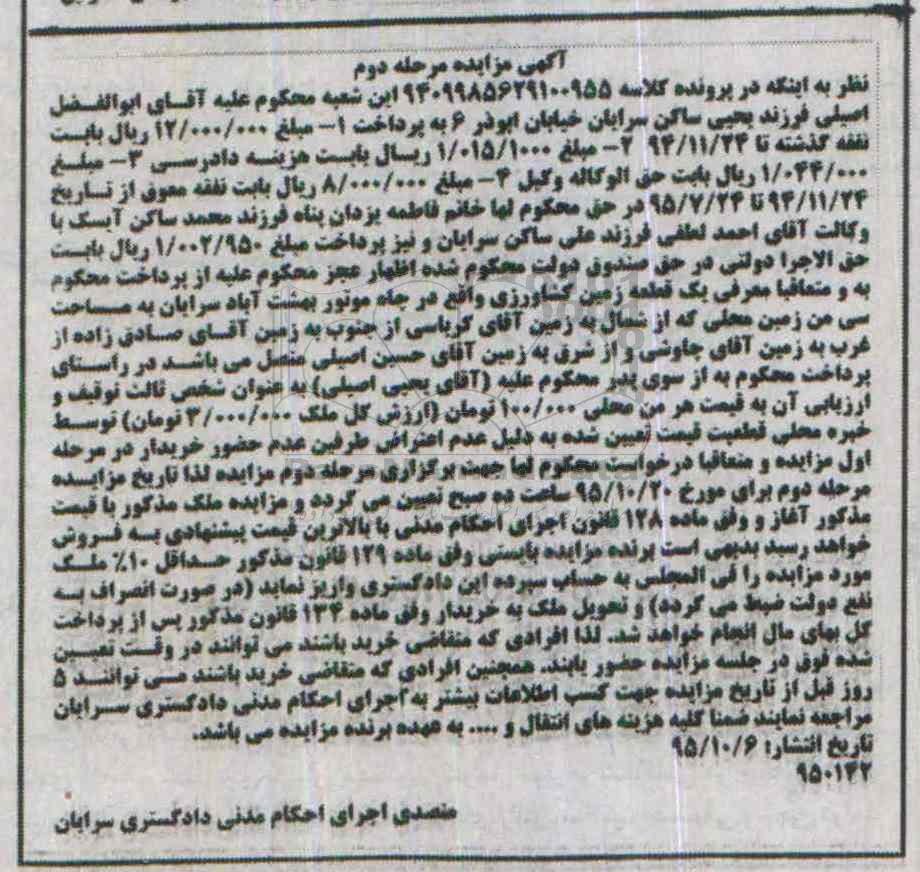 آگهی مزایده مرحله دوم
نظر به اینکه در پرونده کلاسه ۹۴۰۹۹۸۵۶۲۹۱۰۰۹۵۵ این شعبه محکوم علیه آقـای ابوالفـضل
اصیلی فرزند یحیی ساکن سرایان خیابان ابوذر ۶ به پرداخت ۱- مبلغ ۱۲/۰۰۰/۰۰۰ ریال بابـت
نفقه گذشته تا ۹۴/۱۱/۲۴ ۲- مبلغ ۱/۰۱۵/۱۰۰۰ ریـال بابـت هزینـه دادرسـی ۳- مبلـغ
۱/۰۴۴/۰۰۰ ریال بابت حق الوکاله وکیل ۴- مبلغ ۸/۰۰۰/۰۰۰ ریال بابت نفقه معوق از تـاریخ
۹۴/۱۱/۲۴ تا ۹۵/۷/۲۴ در حق محکوم لها خانم فاطمه یزدان پناه فرزند محمد ساکن آیسک با
وکالت آقای احمد لطفی فرزند علی ساکن سرایان و نیز پرداخت مبلغ ۱/۰۰۲/۹۵۰ ریال بابـت
حق الاجرا دولتی در حق صندوق دولت محکوم شده اظهار عجز محکوم علیه از پرداخت محکوم
به و متعاقبا معرفی یک قطعه زمین کشاورزی واقع در چاه موتور بهشت آباد سرایان به مساحت
سی من زمین محلی که از شمال به زمین آقای کرباسی از جنوب به زمین آقـای صـادق زاده از
غرب به زمین آقای چاوشی و از شرق به زمین آقای حسین اصیلی متصل می باشـد در راسـتای
پرداخت محکوم به از سوی پدر محکوم علیه (آقای یحیی اصیلی) به عنوان شخص ثالث توقیف و
ارزیابی آن به قیمت هر من محلی ۱۰۰/۰۰۰ تومان (ارزش کل ملک ۳/۰۰۰/۰۰۰ تومان) توسـط
خبره محلی قطعیت قیمت تعیین شده به دلیل عدم اعتراض طرفین عدم حضور خریدار در مرحله
اول مزایده و متعاقبا درخواست محکوم لها جهت برگزاری مرحله دوم مزایده لذا تاریخ مزایـده
مرحله دوم برای مورخ ۹۵/۱۰/۲۰ ساعت ده صبح تعیین می گردد و مزایده ملک مذکور با قیمت
مذکور آغاز و وفق ماده ۱۲۸ قانون اجرای احکام مدنی با بالاترین قیمت پیشنهادی بـه فـروش
خواهد رسید بدیهی است برنده مزایده بایستی وفق ماده ۱۲۹ قانون مذکور حـداقل ۱۰٪ ملـک
مورد مزایده را فی المجلس به حساب سپرده این دادگستری واریز نماید (در صورت انصراف بـه
نفع دولت ضبط می گردد) و تحویل ملک به خریدار وفق ماده ۱۳۴ قانون مذکور پس از پرداخت
کل بهای مال انجام خواهد شد. لذا افرادی که متقاضی خرید باشند می توانند در وقـت تعیـین
شده فوق در جلسه مزایده حضور یابند. همچنین افرادی که متقاضی خرید باشند مـی تواننـد ۵
روز قبل از تاریخ مزایده جهت کسب اطلاعات بیشتر به اجرای احکام مدنی دادگستری سـرایان
مراجعه نمایند ضمنا کلیه هزینه های انتقال و .... به عهده برنده مزایده می باشد.
تاریخ انتشار: ۹۵/۱۰/۶
۹۵۰۱۴۲
متصدی اجرای احکام مدنی دادگستری سرایان